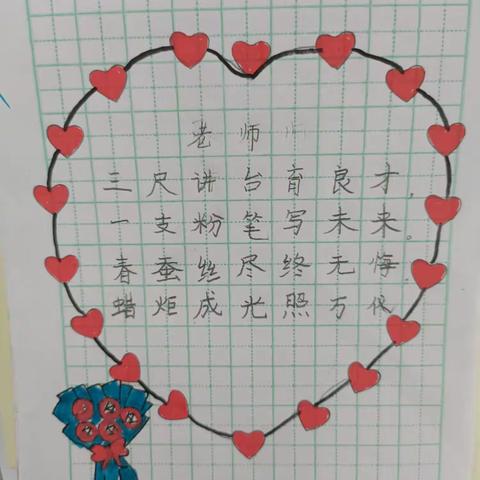 老师
三尺讲台育良才,
一支粉笔写未来。
春蚕丝尽终无悔,
蜡炬成光照万代